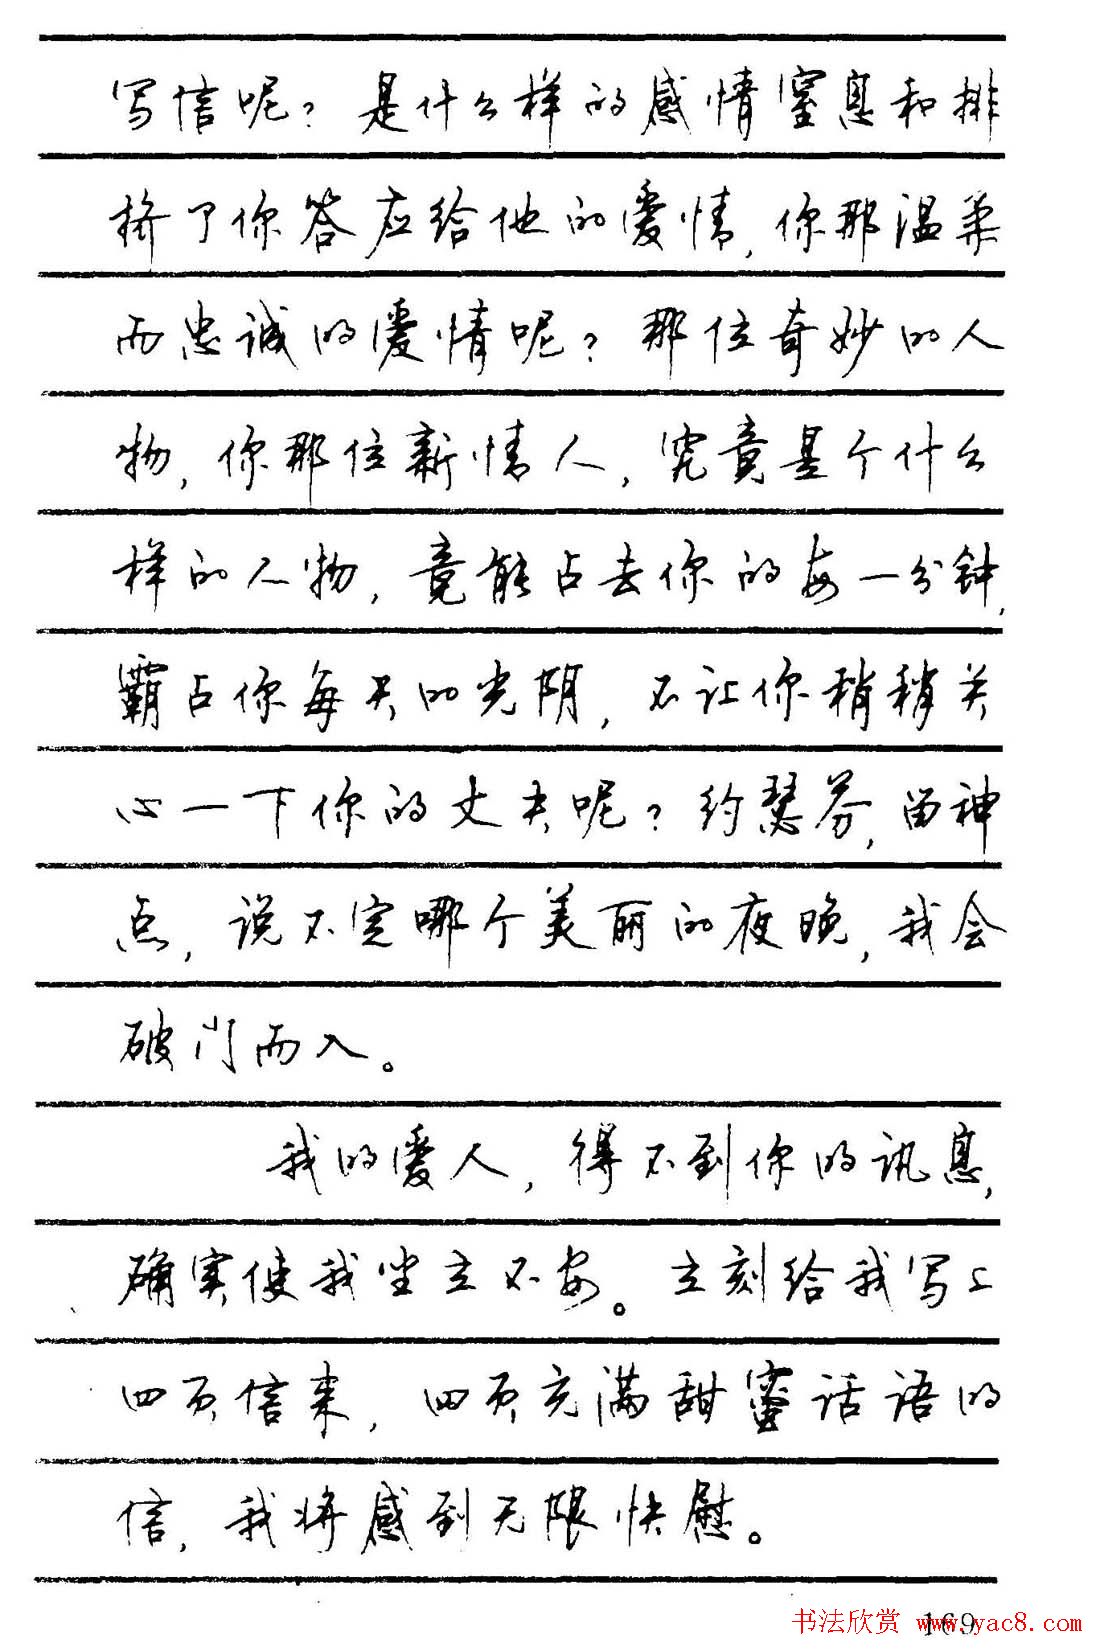 写信呢？是什么样的感情窒息和排
挤了你答应给他的爱情，你那温柔
而忠诚的爱情呢？那位奇妙的人
物，你那位新情人，究竟是个什么
样的人物，竟能占去你的每一分钟，
霸占你每天的光阴，不让你稍稍关
心一下你的丈夫呢？约瑟芬，留神
点，说不定哪个美丽的夜晚，我会
破门而入。
我的爱人，得不到你的讯息，
确实使我坐立不安。立刻给我写上
四页信来，四页充满甜蜜话语的
信，我将感到无限快慰。
169
书法欣赏 www.yac8.com